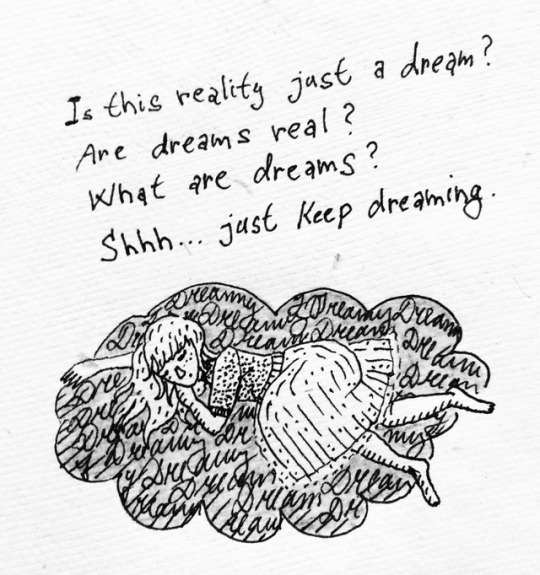 Is this reality just a dream?
Are dreams real?
What are dreams?
Shhh... just keep dreaming.
Dreamy Dream Dreamy Dream
Dream Dream Dream
Dream
Dream
Dream
Dream
Dream Dream
Dream